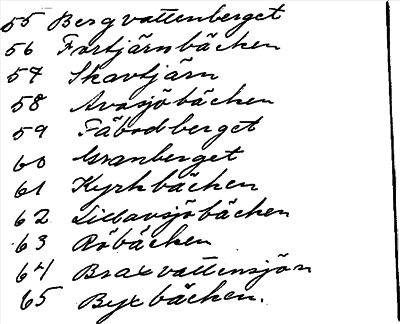 55 Bergvattenberget
56 Fortjärnbäcken
57 Skavtjärn
58 Avasjöbäcken
59 Fäbodberget
60 Granberget
61 Kyrkbäcken
62 Lidavsjöbäcken
63 Röbäcken
64 Braxvattensjön
65 Byxbäcken.